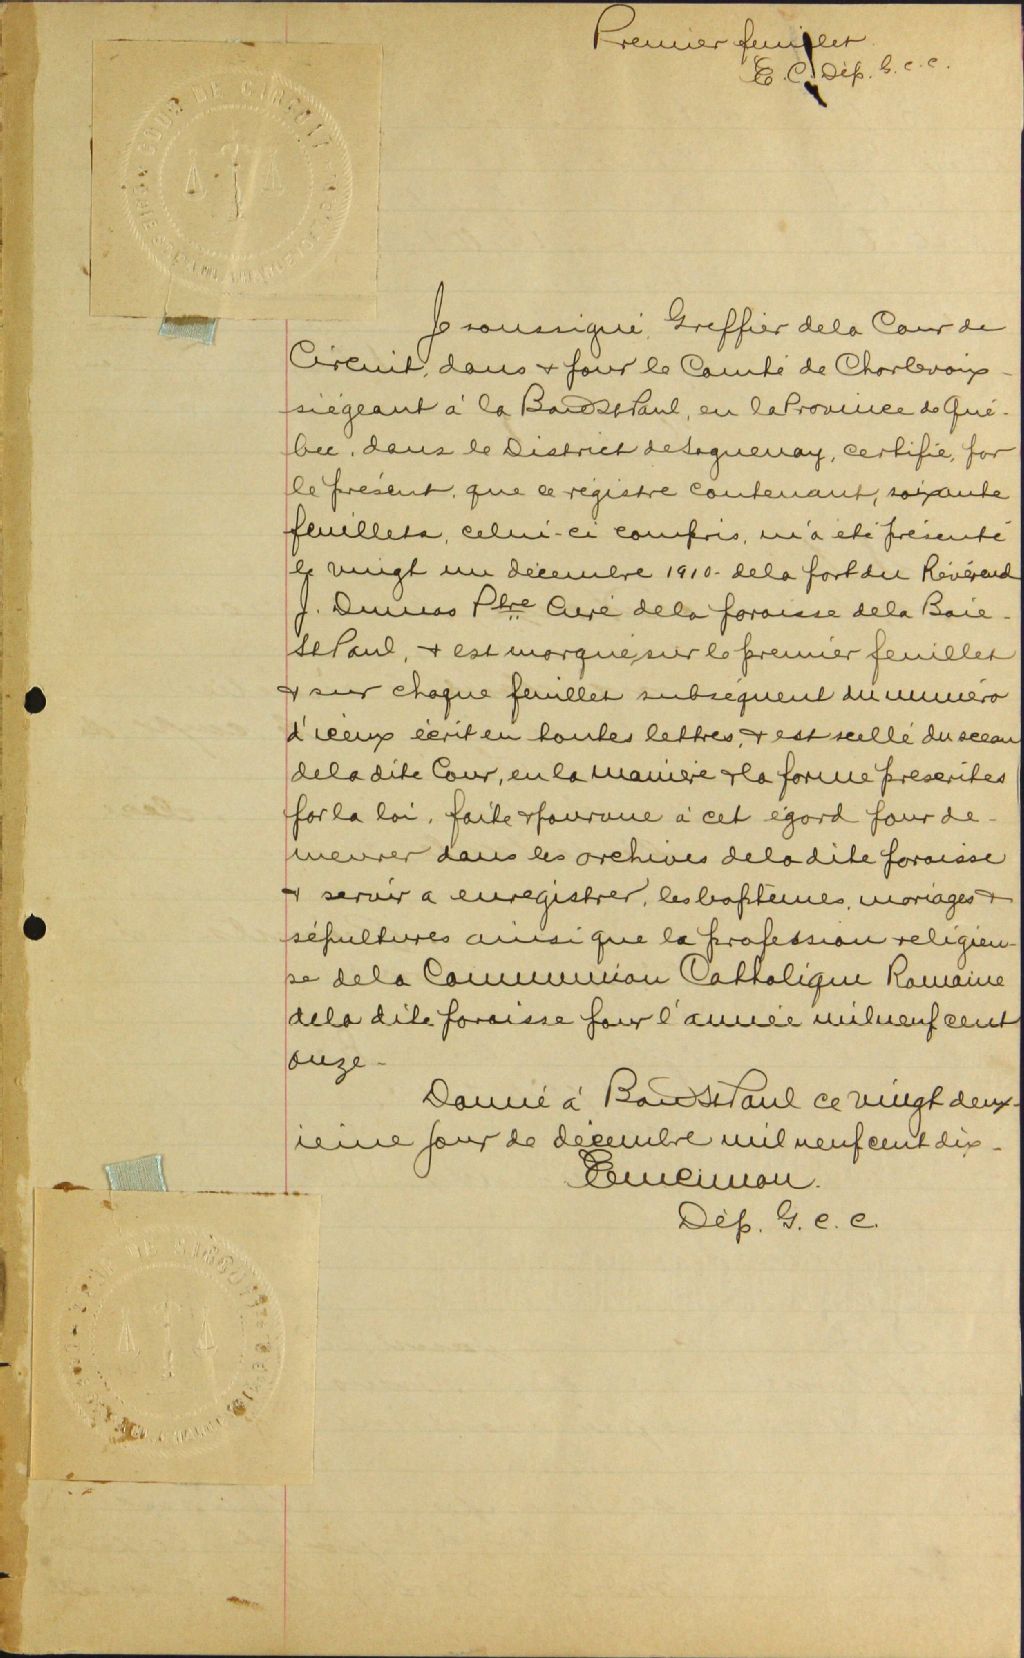 Premier feuillet
E. C. Dép. G. C. C.
COUR DE CIRCUIT
Je soussigné, Greffier de la Cour de
Circuit, dans & pour le Comté de Charlevoix
siégeant à la Baie St Paul, en la Province de Qué-
bec, dans le District de Saguenay, certifie, par
le présent, que ce régistre contenant, soixante
feuillets, celui-ci compris, m'a été présenté
le vingt un décembre 1910 - de la part du Révérend
J. Dumas Ptre Curé de la paroisse de la Baie-
St Paul, & est marqué, sur le premier feuillet
& sur chaque feuillet subséquent du numéro
d'iceux écrit en toutes lettres, & est scellé du sceau
de la dite Cour, en la manière & la forme prescrites
par la loi, faite & pourvue à cet égard pour de-
meurer dans les archives de la dite paroisse
& servir a enregistrer, les baptêmes, mariages &
sépultures ainsi que la profession religieu-
se de la Communion Catholique Romaine
de la dite paroisse pour l'année mil neuf cent
onze -
Donné à Baie St Paul ce vingt deux-
ième jour de décembre mil neuf cent dix -
Dép. G. C. C.
DE CIRCUIT